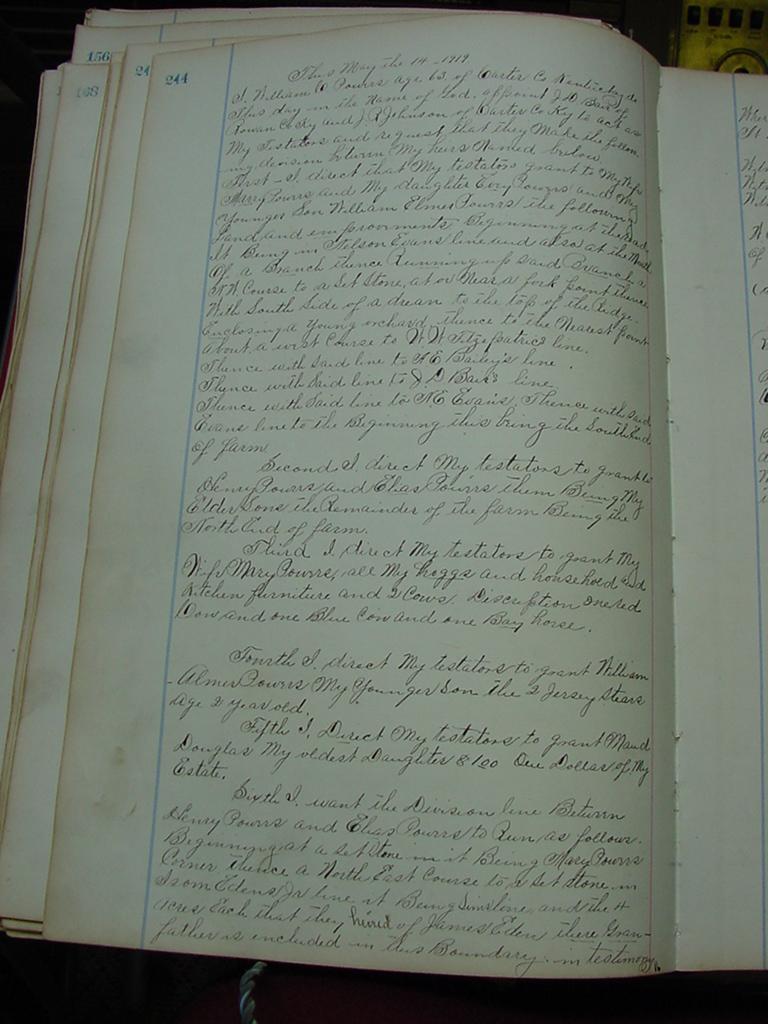 156
168
24
244
This May the 14 - 1919
I. William O Powers age 63 of Carter Co Kentucky do
This day in the Name of God. appoint J. D. Bair of
Rowan Co Ky and J. R Johnson of Carter Co Ky to act as
My Testators and request that they Make the follow-
ing devision between My heirs Named below.
First - I. direct that My testators grant to My Wife
Mary Powers and My daughter Evry Powers and My
Younger Son William Elmer Powers the following
Land and emproovments, Beginning at the Road
It Being in Nelson Evans line and also at the Mouth
Of a Branch thence Running up said Branch a
N.W. Course to a Set Stone, at or Near a fork point thence
With South Side of a drean to the top of the Ridge-
Enclosing a Young orchard, thence to the Nearest point
About a west Course to W. W Fitzpatrics line.
Thence with said line to A E Bailey's line.
Thence with Said line to J. D Bairs line
Thence with Said line to N E Evans, Thence with said
Evans line to the Beginning this being the South End
Of farm
Second I. direct My testators to grant to
Henry Powers and Elias Powers them Being My
Elder Sons the Remainder of the farm Being the
North End of farm.
Third I direct My testators to grant My
Wife Mary Powers, all My hoggs and household and
Kitchen furniture and 2 Cows. Discription one red
Cow and one Blue Cow and one Bay horse.
Fourth I. direct My testators to grant William
Almer Powers My Younger Son the 2 Jersey Stears
Age 2 year old.
Fifth I. Direct My testators to grant Maud
Douglas My oldest Daughter $100 One Dollar of My
Estate.
Sixth I. want the Division line Between
Henry Powers and Elias Powers to Run as follows.
Beginning at a Set Stone in it Being Mary Powers
Corner thence a North East Course to a Set Stone in
Isom Edens Jr line it Being line, and the 4
Acres Each that they heired of James Eden there Gran-
father is included in this Boundary. in testimony